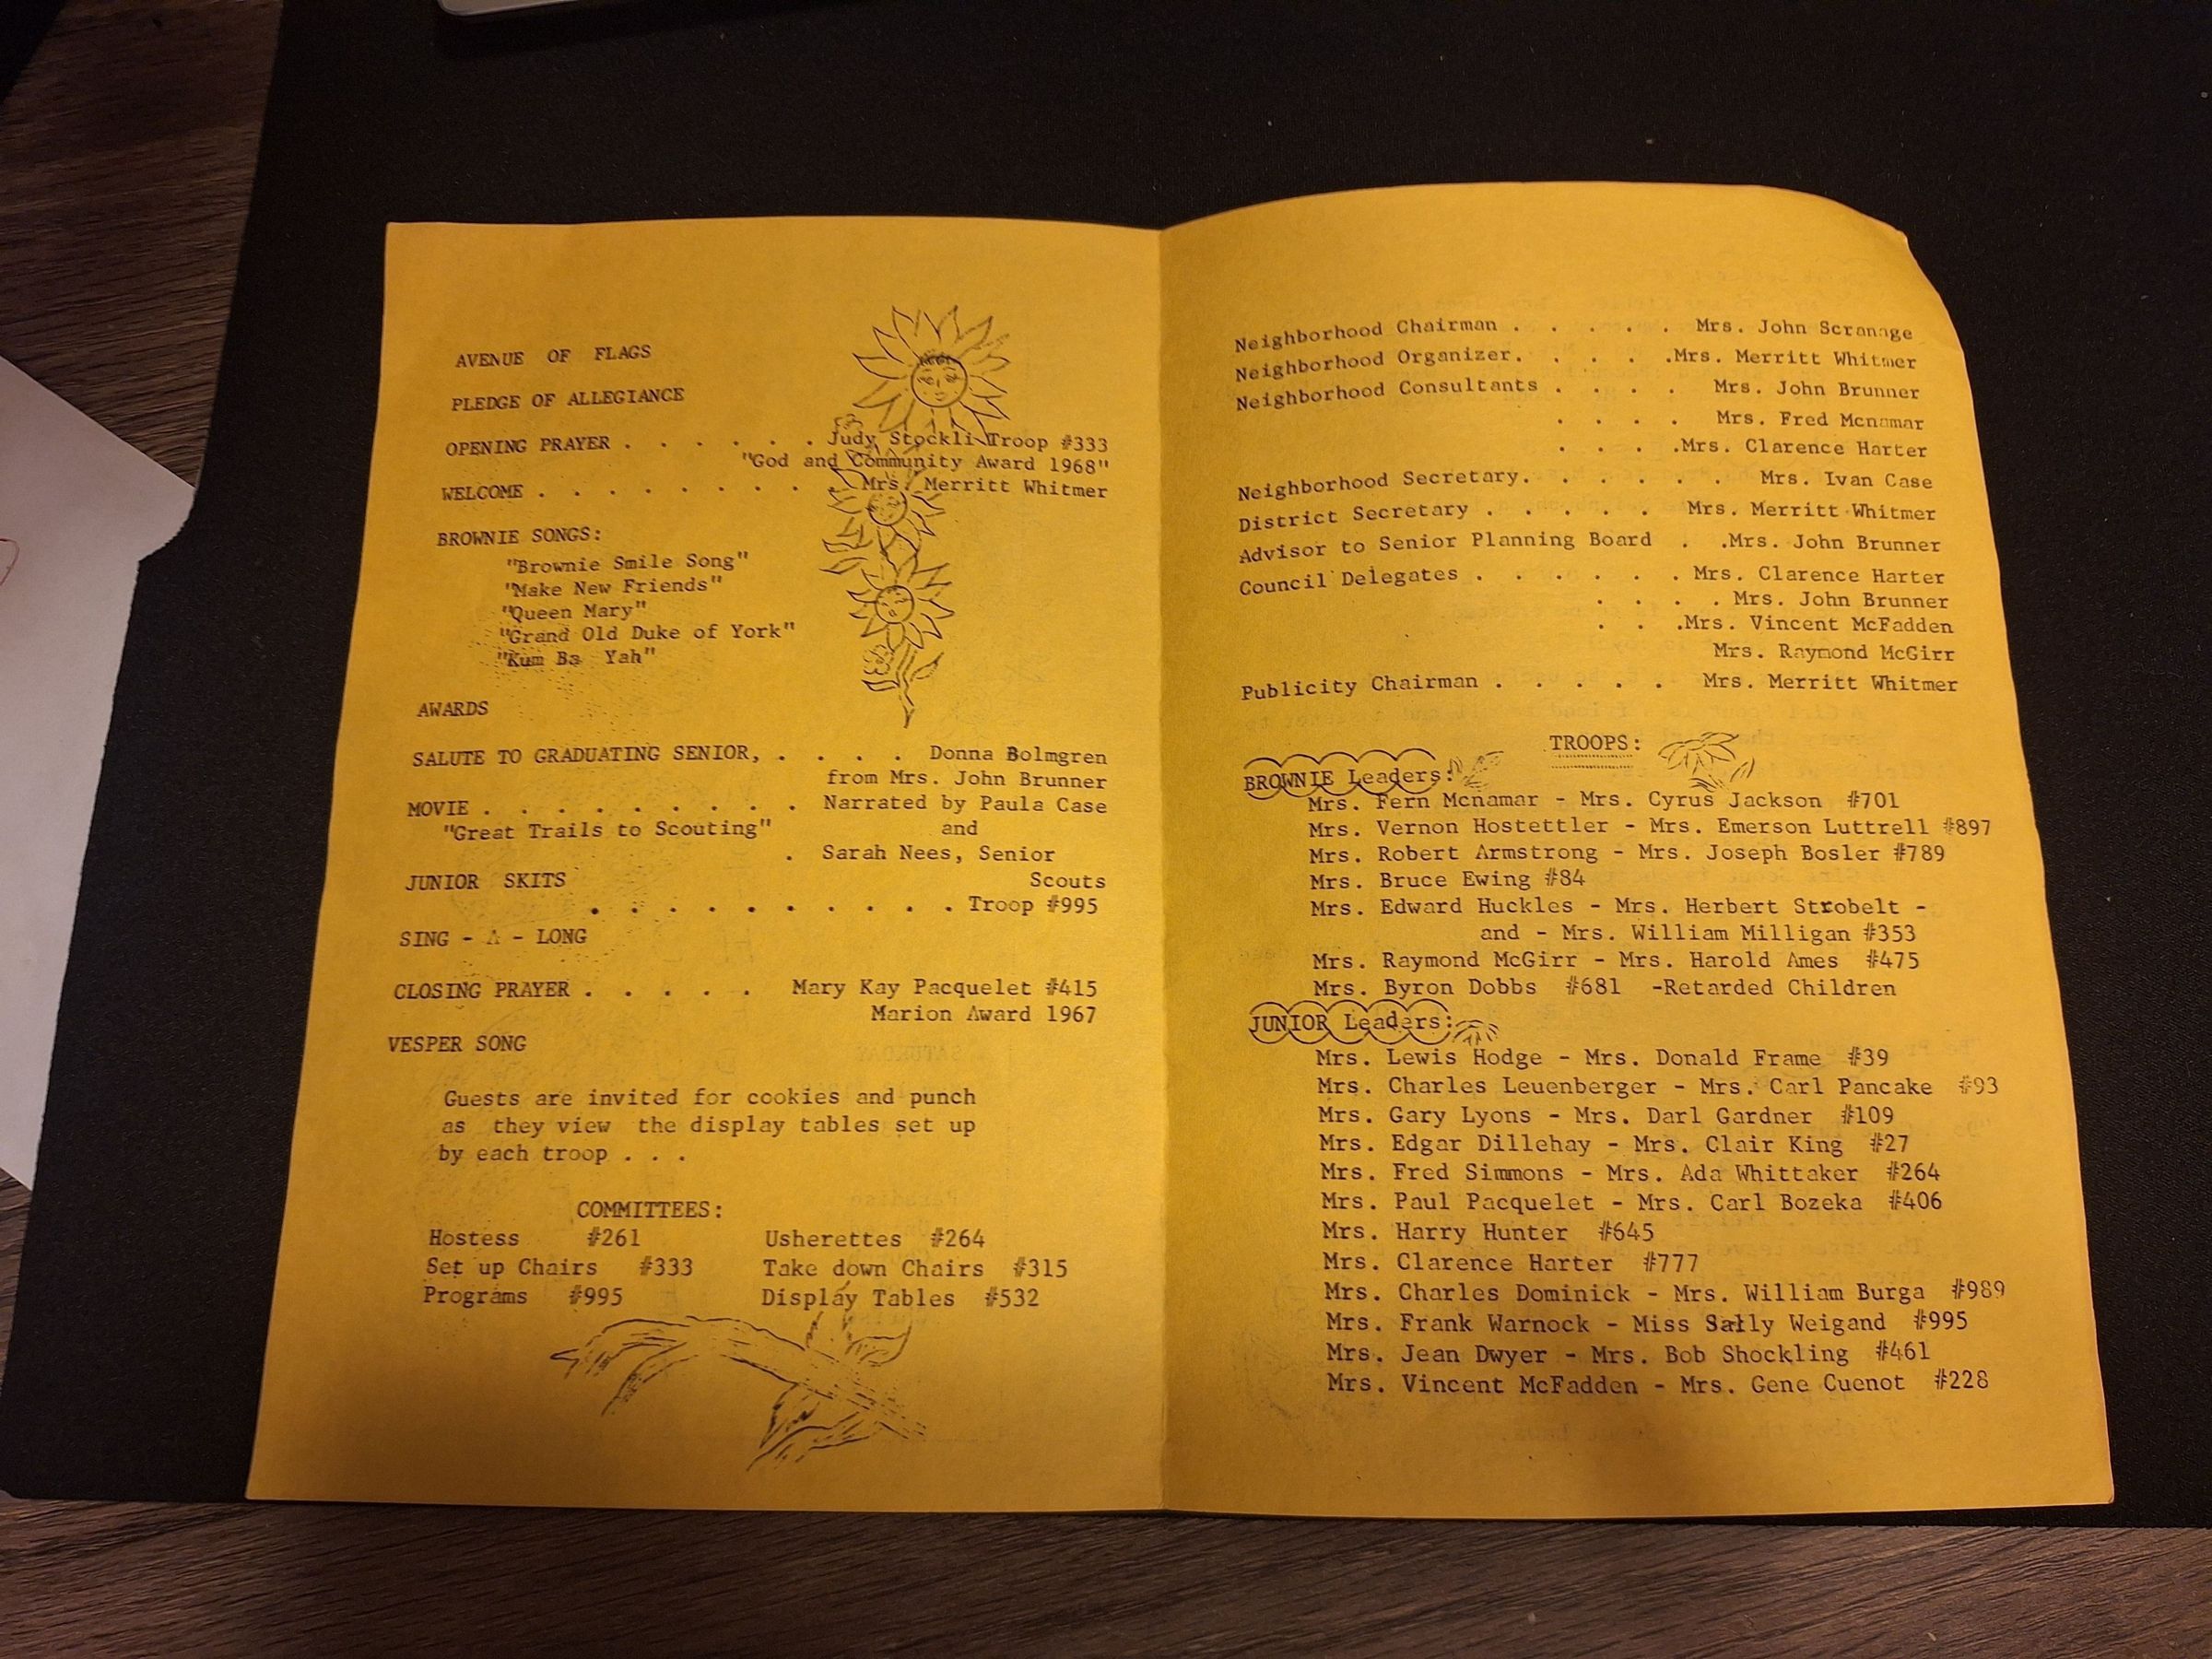 AVENUE OF FLAGS
PLEDGE OF ALLEGIANCE
OPENING PRAYER . . . . . . Judy Stockli Troop #333
"God and Community Award 1968"
WELCOME . . . . . . . . Mrs. Merritt Whitmer
BROWNIE SONGS:
"Brownie Smile Song"
"Make New Friends"
"Queen Mary"
"Grand Old Duke of York"
"Kum Ba Yah"
AWARDS
SALUTE TO GRADUATING SENIOR, . . . . Donna Bolmgren
from Mrs. John Brunner
MOVIE . . . . . . . . . Narrated by Paula Case
"Great Trails to Scouting" and
. Sarah Nees, Senior
JUNIOR SKITS Scouts
. . . . . . . . . . Troop #995
SING - A - LONG
CLOSING PRAYER . . . . . Mary Kay Pacquelet #415
Marion Award 1967
VESPER SONG
Guests are invited for cookies and punch
as they view the display tables set up
by each troop . . .
COMMITTEES:
Hostess #261 Usherettes #264
Set up Chairs #333 Take down Chairs #315
Programs #995 Display Tables #532
Neighborhood Chairman . . . . . Mrs. John Scranage
Neighborhood Organizer. . . . .Mrs. Merritt Whitmer
Neighborhood Consultants . . . . Mrs. John Brunner
. . . . Mrs. Fred Mcnamar
. . . .Mrs. Clarence Harter
Neighborhood Secretary. . . . . . Mrs. Ivan Case
District Secretary . . . . . Mrs. Merritt Whitmer
Advisor to Senior Planning Board . .Mrs. John Brunner
Council Delegates . . . . . . Mrs. Clarence Harter
. . . . Mrs. John Brunner
. . .Mrs. Vincent McFadden
Mrs. Raymond McGirr
Publicity Chairman . . . . . Mrs. Merritt Whitmer
TROOPS:
BROWNIE Leaders:
Mrs. Fern Mcnamar - Mrs. Cyrus Jackson #701
Mrs. Vernon Hostettler - Mrs. Emerson Luttrell #897
Mrs. Robert Armstrong - Mrs. Joseph Bosler #789
Mrs. Bruce Ewing #84
Mrs. Edward Huckles - Mrs. Herbert Strobelt -
and - Mrs. William Milligan #353
Mrs. Raymond McGirr - Mrs. Harold Ames #475
Mrs. Byron Dobbs #681 -Retarded Children
JUNIOR Leaders:
Mrs. Lewis Hodge - Mrs. Donald Frame #39
Mrs. Charles Leuenberger - Mrs. Carl Pancake #93
Mrs. Gary Lyons - Mrs. Darl Gardner #109
Mrs. Edgar Dillehay - Mrs. Clair King #27
Mrs. Fred Simmons - Mrs. Ada Whittaker #264
Mrs. Paul Pacquelet - Mrs. Carl Bozeka #406
Mrs. Harry Hunter #645
Mrs. Clarence Harter #777
Mrs. Charles Dominick - Mrs. William Burga #989
Mrs. Frank Warnock - Miss Sally Weigand #995
Mrs. Jean Dwyer - Mrs. Bob Shockling #461
Mrs. Vincent McFadden - Mrs. Gene Cuenot #228